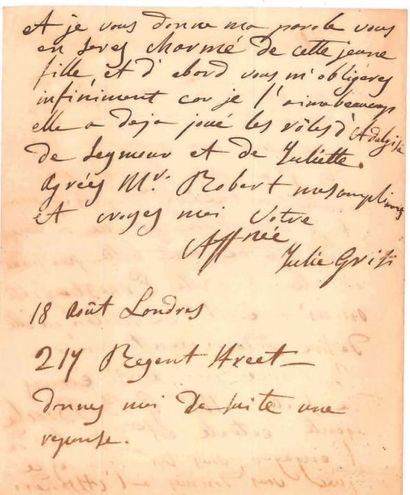 et je vous donne ma parole vous
en seres charmé de cette jeune
fille, et d'abord vous m'obligeres
infiniment car je l'aime beaucoup
elle a deja joué les rôles d'Adalgise
de Seymour et de Juliette.
Agrées Mr. Robert mes compliments
et croyes moi votre
Affnée
Julie Grisi
18 Août Londres
217 Regent Street
donnes moi de suite une
reponse.